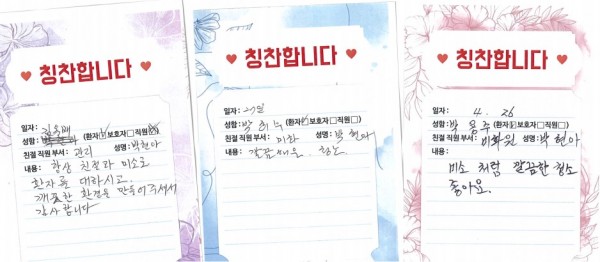 칭찬합니다
일자:
성함: (환자☑보호자☐직원☒)
친절 직원 부서: 관리 성명: 박현아
내용: 항상 친절과 미소로
환자를 대하시고.
깨끗한 환경을 만들어주셔서
감사합니다
칭찬합니다
일자: 27일
성함: 박희 (환자☑보호자☐직원☐)
친절 직원 부서: 미화 성명: 박현아
내용: 깔끔해요. 청소
칭찬합니다
일자: 4. 26
성함: 박용주 (환자☑보호자☐직원☐)
친절 직원 부서: 미화원 성명: 박현아
내용:
미소 처럼 깔끔한 청소
좋아요.